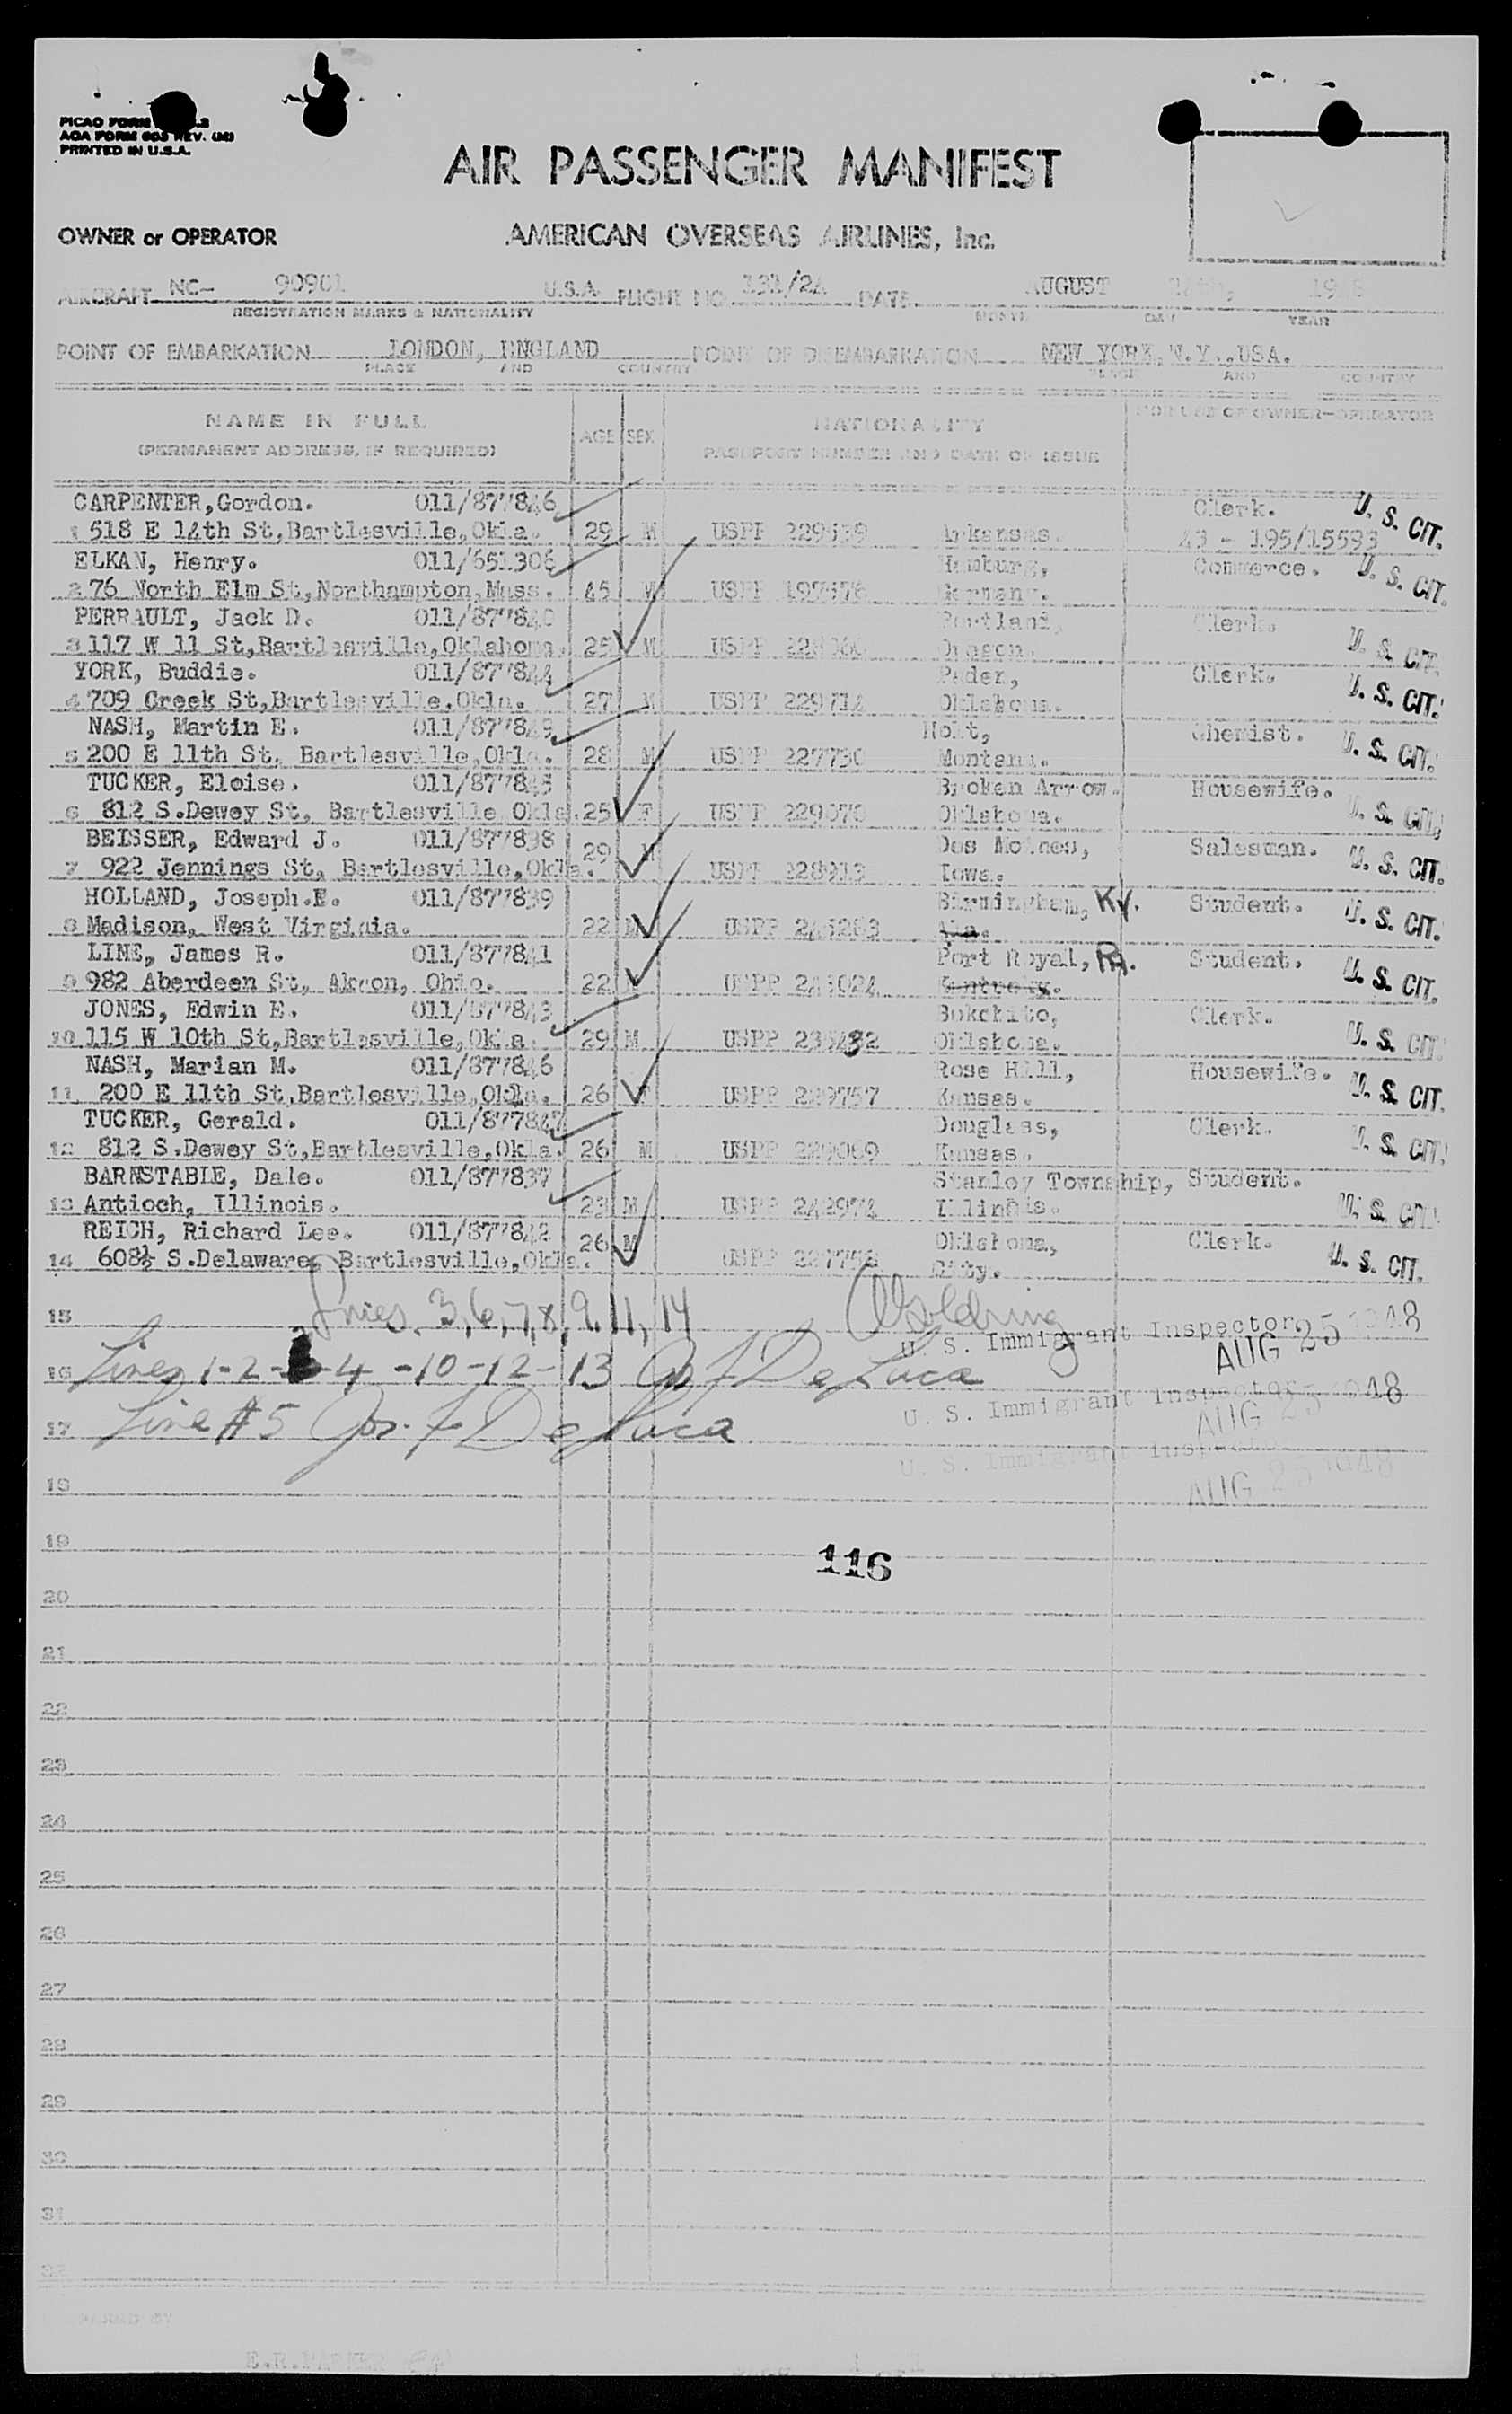 PICAO FORM
AOA FORM 603 REV.
PRINTED IN U.S.A.
AIR PASSENGER MANIFEST
OWNER or OPERATOR AMERICAN OVERSEAS AIRLINES, Inc.
AIRCRAFT NC- 90901 U.S.A. FLIGHT NO. 131/24 DATE AUGUST 1948
REGISTRATION MARKS & NATIONALITY MONTH DAY YEAR
POINT OF EMBARKATION LONDON, ENGLAND POINT OF DISEMBARKATION NEW YORK, N.Y.,USA.
PLACE AND COUNTRY PLACE AND COUNTRY
NAME IN FULL AGE SEX NATIONALITY FOR USE OF OWNER-OPERATOR
(PERMANENT ADDRESS, IF REQUIRED) PASSPORT NUMBER AND DATE OF ISSUE
CARPENTER,Gordon. 011/877846 Clerk. U. S. CIT.
1 518 E 14th St,Bartlesville,Okla. 29 M USPP 229639 Arkansas. 43 - 195/15593
ELKAN, Henry. 011/651306 Hamburg, Commerce. U. S. CIT.
2 76 North Elm St,Northampton,Mass. 45 M USPP Germany.
PERRAULT, Jack D. 011/877840 Portland, Clerk.
3 117 W 11 St,Bartlesville,Oklahoma. 25 M USPP Oregon. U. S. CIT.
YORK, Buddie. 011/877844 Paden, Clerk.
4 709 Creek St,Bartlesville,Okla. 27 M USPP 229714 Oklahoma. U. S. CIT.
NASH, Martin E. 011/877849 Hoit, Chemist.
5 200 E 11th St, Bartlesville,Okla. 28 M USPP 227730 Montana. U. S. CIT.
TUCKER, Eloise. 011/877845 Broken Arrow. Housewife.
6 812 S.Dewey St, Bartlesville Okla. 25 F USPP 229070 Oklahoma. U. S. CIT.
BEISSER, Edward J. 011/877838 29 M Des Moines, Salesman.
7 922 Jennings St, Bartlesville,Okla. USPP 228913 Iowa. U. S. CIT.
HOLLAND, Joseph.E. 011/877839 Birmingham, Ky. Student.
8 Madison, West Virginia. 22 M USPP 243263 Ala. U. S. CIT.
LINE, James R. 011/877841 Port Royal, Pa. Student.
9 982 Aberdeen St, Akron, Ohio. 22 M USPP 243024 Kentucky. U. S. CIT.
JONES, Edwin E. 011/877843 Bokchito, Clerk.
10 115 W 10th St,Bartlesville,Okla. 29 M USPP Oklahoma. U. S. CIT.
NASH, Marian M. 011/877846 Rose Hill, Housewife.
11 200 E 11th St,Bartlesville,Okla. 26 F USPP 229757 Kansas. U. S. CIT.
TUCKER, Gerald. 011/877847 Douglass, Clerk.
12 812 S.Dewey St,Bartlesville,Okla. 26 M USPP 229069 Kansas. U. S. CIT.
BARNSTABLE, Dale. 011/877837 Stanley Township, Student.
13 Antioch, Illinois. 23 M USPP 242974 Illinois. U. S. CIT.
REICH, Richard Lee. 011/877842 26 M Oklahoma, Clerk.
14 608½ S.Delaware, Bartlesville,Okla. USPP 227758 City. U. S. CIT.
15 Lines 3,6,7,8,9,11,14 Goldring
U. S. Immigrant Inspector AUG 25 1948
16 Lines 1-2-4-10-12-13 Jos F DeLuca
U. S. Immigrant Inspector AUG 25 1948
17 Line #5 Jos. F DeLuca
U. S. Immigrant Inspector AUG 25 1948
18
19
116
20
21
22
23
24
25
26
27
28
29
30
31
32